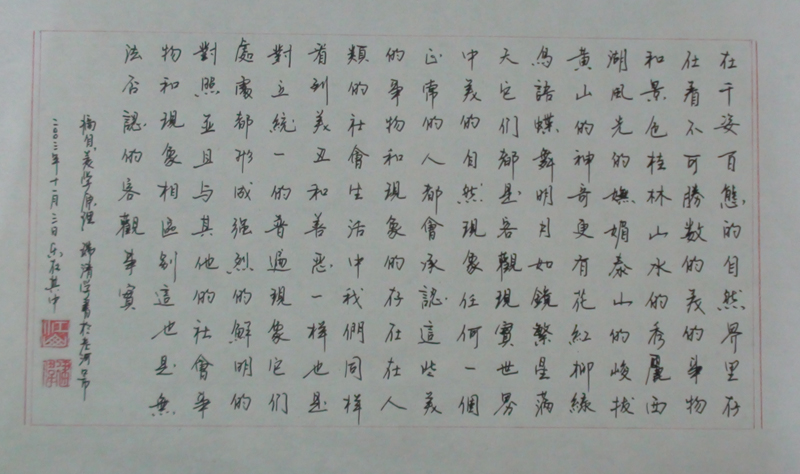 在千姿百態的自然界里存
在着不可勝數的美的事物
和景色桂林山水的秀麗西
湖風光的嫵媚泰山的峻拔
黄山的神奇更有花紅柳綠
鳥語蝶舞明月如鏡繁星滿
天它们都是客觀現實世界
中美的自然現象任何一個
正常的人都會承認這些美
的事物和現象的存在在人
類的社會生活中我們同樣
看到美丑和善惡一樣也是
對立統一的普遍現象它们
處處都形成强烈的鮮明的
對照並且与其他的社會事
物和現象相區别這也是無
法否認的客觀事實
摘自美学原理 書於老河口市
二〇〇二年十一月二日乐在其中